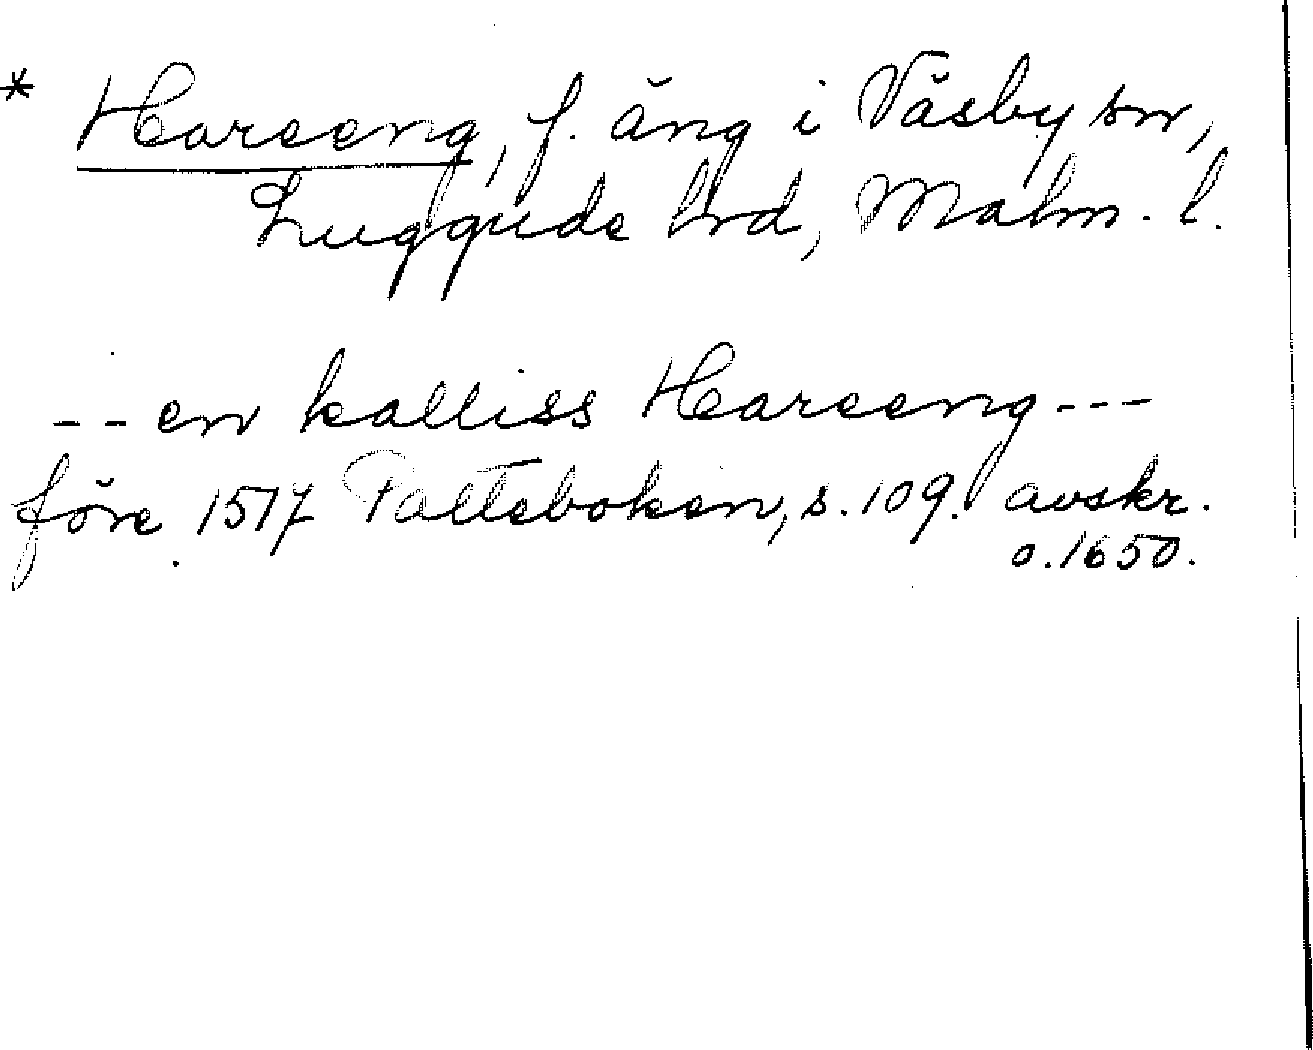 * Hareeng, f. äng i Väsby sn,
Luggude hd, Malm. l.
-- en kalliss Hareeng ---
före 1517 Palteboken, s. 109. avskr.
o. 1650.